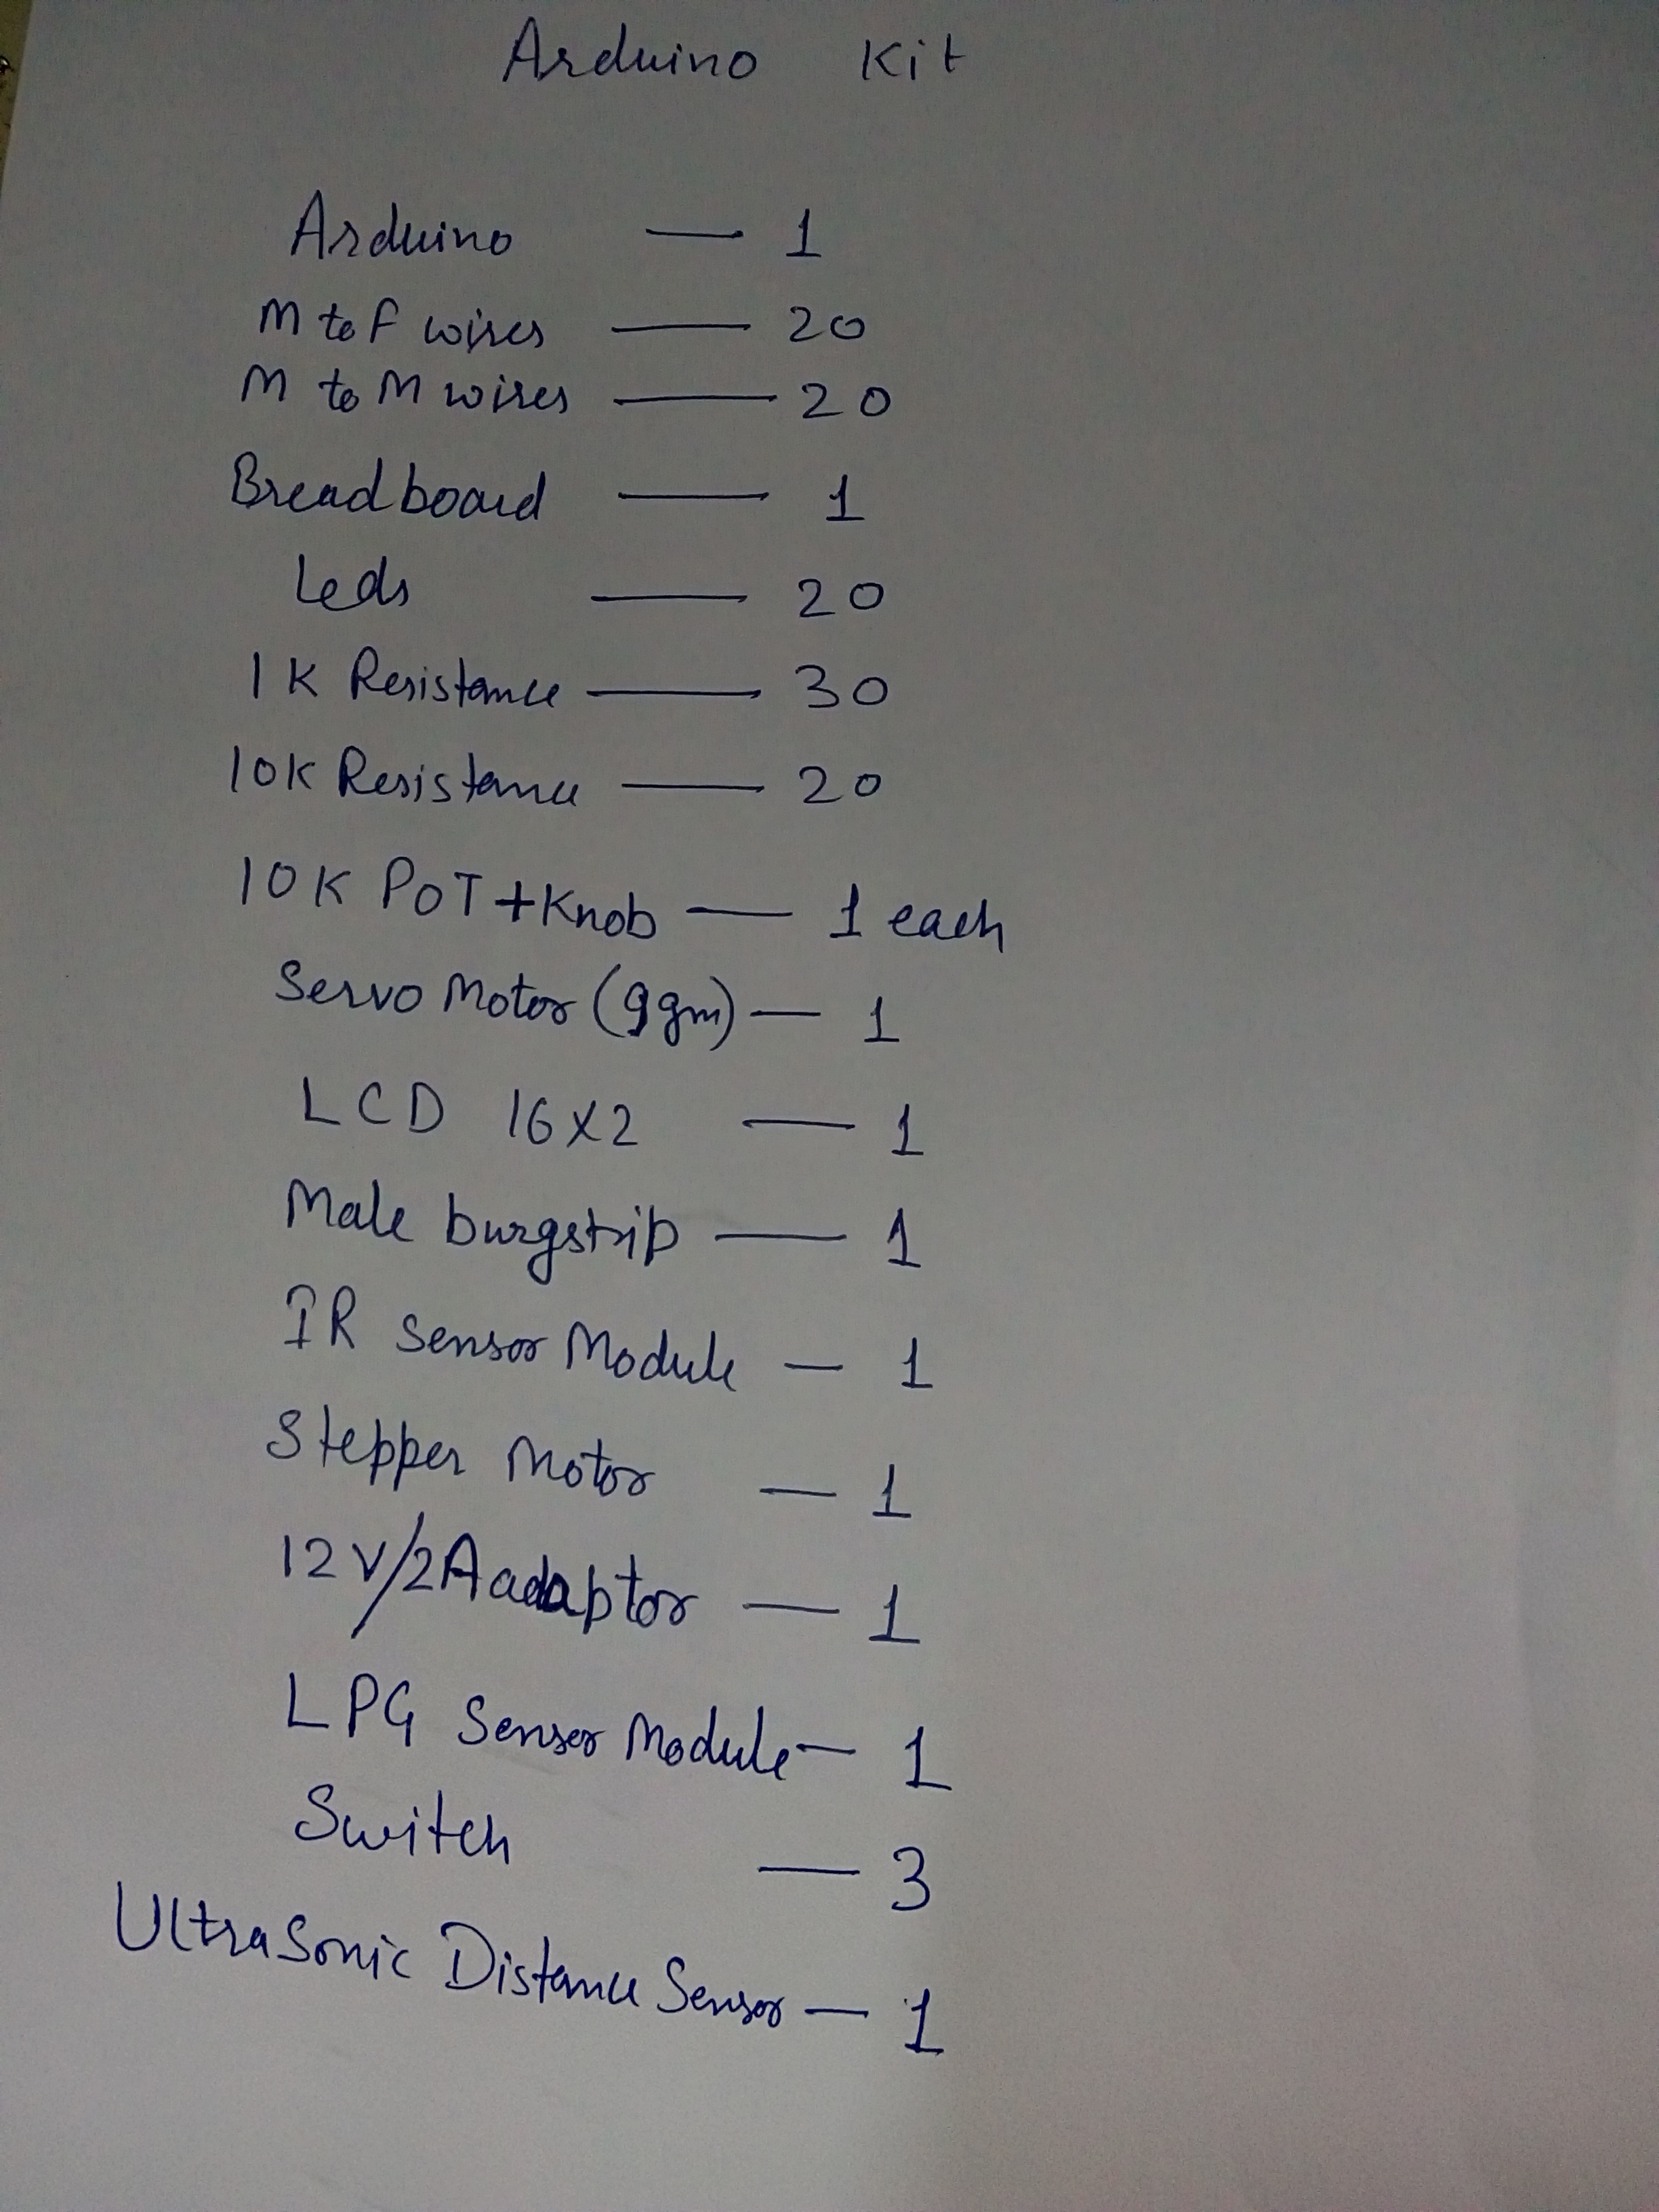 Arduino Kit
Arduino — 1
M to F wires — 20
M to M wires — 20
Breadboard — 1
Leds — 20
1K Resistance — 30
10K Resistance — 20
10K POT+Knob — 1 each
Servo Motor (9gm) — 1
LCD 16X2 — 1
Male burgstrip — 1
IR Sensor Module — 1
Stepper Motor — 1
12V/2A adaptor — 1
LPG Sensor Module — 1
Switch — 3
UltraSonic Distance Sensor — 1